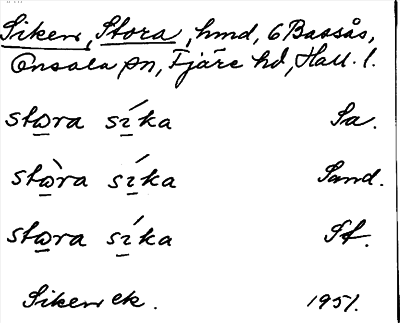 Siken, Stora, hmd, 6 Bassås,
Onsala sn, Fjäre hd, Hall. l.
stω̲ra sí̲ka Sa.
stὼ̲ra sí̲ka Sand.
stω̲ra sí̲ka St.
Siken ek. 1951.